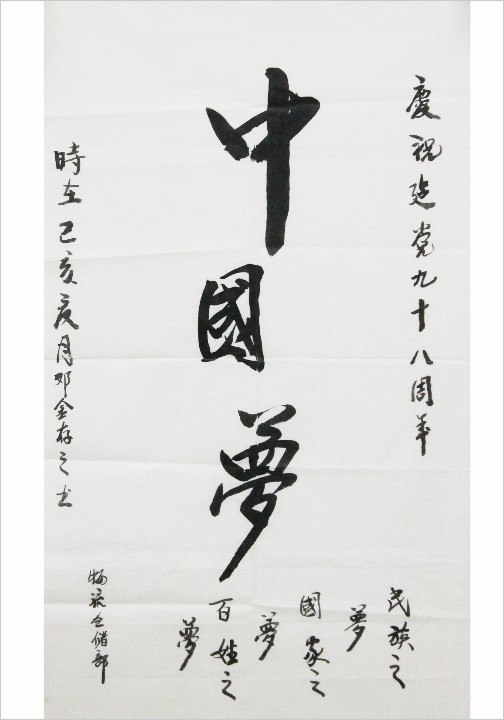 慶祝建党九十八周年
中國夢
民族之
夢
國家之
夢
百姓之
夢
時在己亥夏月邓金存之书
物流仓储部